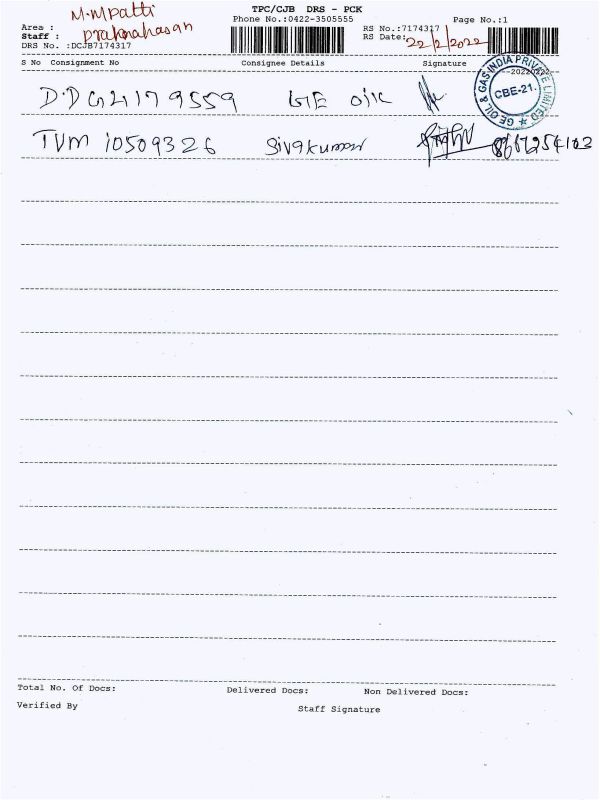 TPC/CJB DRS - PCK
Phone No.:0422-3505555
Page No.:1
Area : M.Mpatti
Staff :
DRS No. :DCJB7174317
RS No.:7174317
RS Date: 22/2/2022
S No Consignment No Consignee Details Signature
--20220222
GE OIL & GAS INDIA PRIVATE LIMITED
CBE-21.
9559
TVM 10509326 Sivakumar
Total No. Of Docs: Delivered Docs: Non Delivered Docs:
Verified By Staff Signature